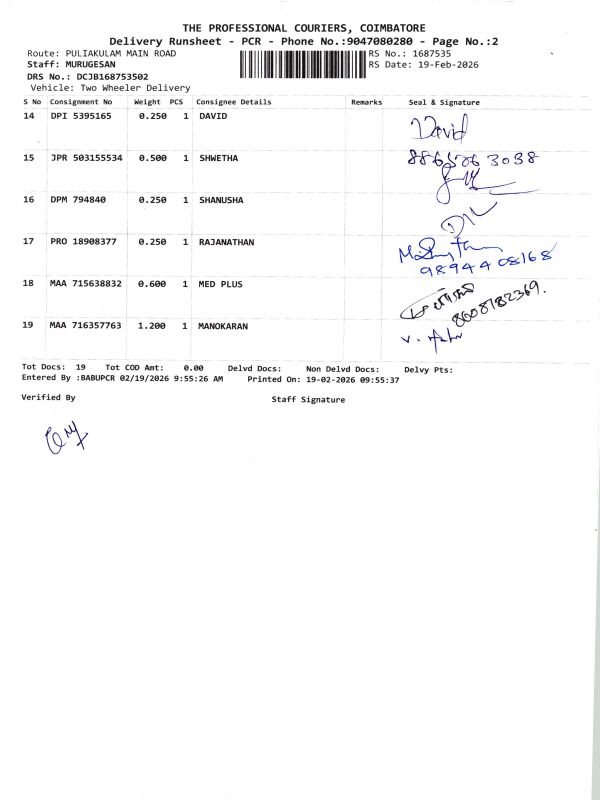 THE PROFESSIONAL COURIERS, COIMBATORE
Delivery Runsheet - PCR - Phone No.:9047080280 - Page No.:2
Route: PULIAKULAM MAIN ROAD RS No.: 1687535
Staff: MURUGESAN RS Date: 19-Feb-2026
DRS No.: DCJB168753502
Vehicle: Two Wheeler Delivery
S No Consignment No Weight PCS Consignee Details Remarks Seal & Signature
14 DPI 5395165 0.250 1 DAVID
David
15 JPR 503155534 0.500 1 SHWETHA
16 DPM 794840 0.250 1 SHANUSHA
17 PRO 18908377 0.250 1 RAJANATHAN
9894408168
18 MAA 715638832 0.600 1 MED PLUS
8608782369.
19 MAA 716357763 1.200 1 MANOKARAN
Tot Docs: 19 Tot COD Amt: 0.00 Delvd Docs: Non Delvd Docs: Delvy Pts:
Entered By :BABUPCR 02/19/2026 9:55:26 AM Printed On: 19-02-2026 09:55:37
Verified By Staff Signature